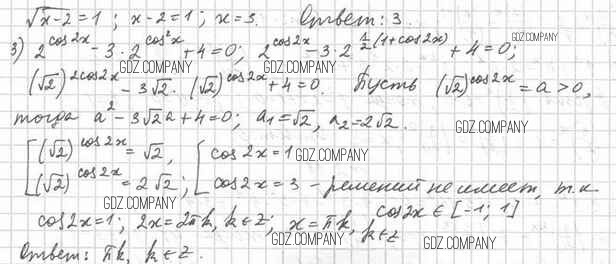 √(x-2) = 1 ; x-2=1 ; x=3. Ответ: 3.
3) 2^(cos2x) - 3·2^(cos²x) + 4 = 0; 2^(cos2x) - 3·2^(½(1+cos2x)) + 4 = 0; GDZ.COMPANY
GDZ.COMPANY GDZ.COMPANY
(√2)^(2cos2x) - 3√2·(√2)^(cos2x) + 4 = 0. Пусть (√2)^(cos2x) = a > 0,
тогда a² - 3√2a + 4 = 0; a₁ = √2, a₂ = 2√2. GDZ.COMPANY
[ (√2)^(cos2x) = √2, [ cos2x = 1 GDZ.COMPANY
(√2)^(cos2x) = 2√2; cos2x = 3 - решений не имеет, т.к
GDZ.COMPANY
cos2x ∈ [-1; 1]
cos2x = 1; 2x = 2πk, k ∈ z; x = πk, k ∈ z
GDZ.COMPANY GDZ.COMPANY
Ответ: πk, k ∈ z.